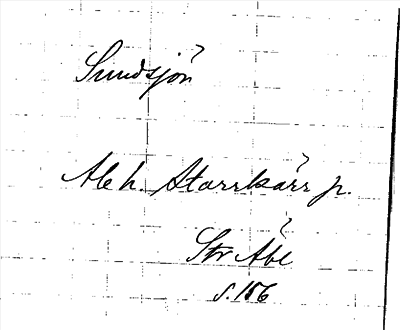 Sundsjön
Ale h. Starrkärr p.
Str Åbc
s. 156